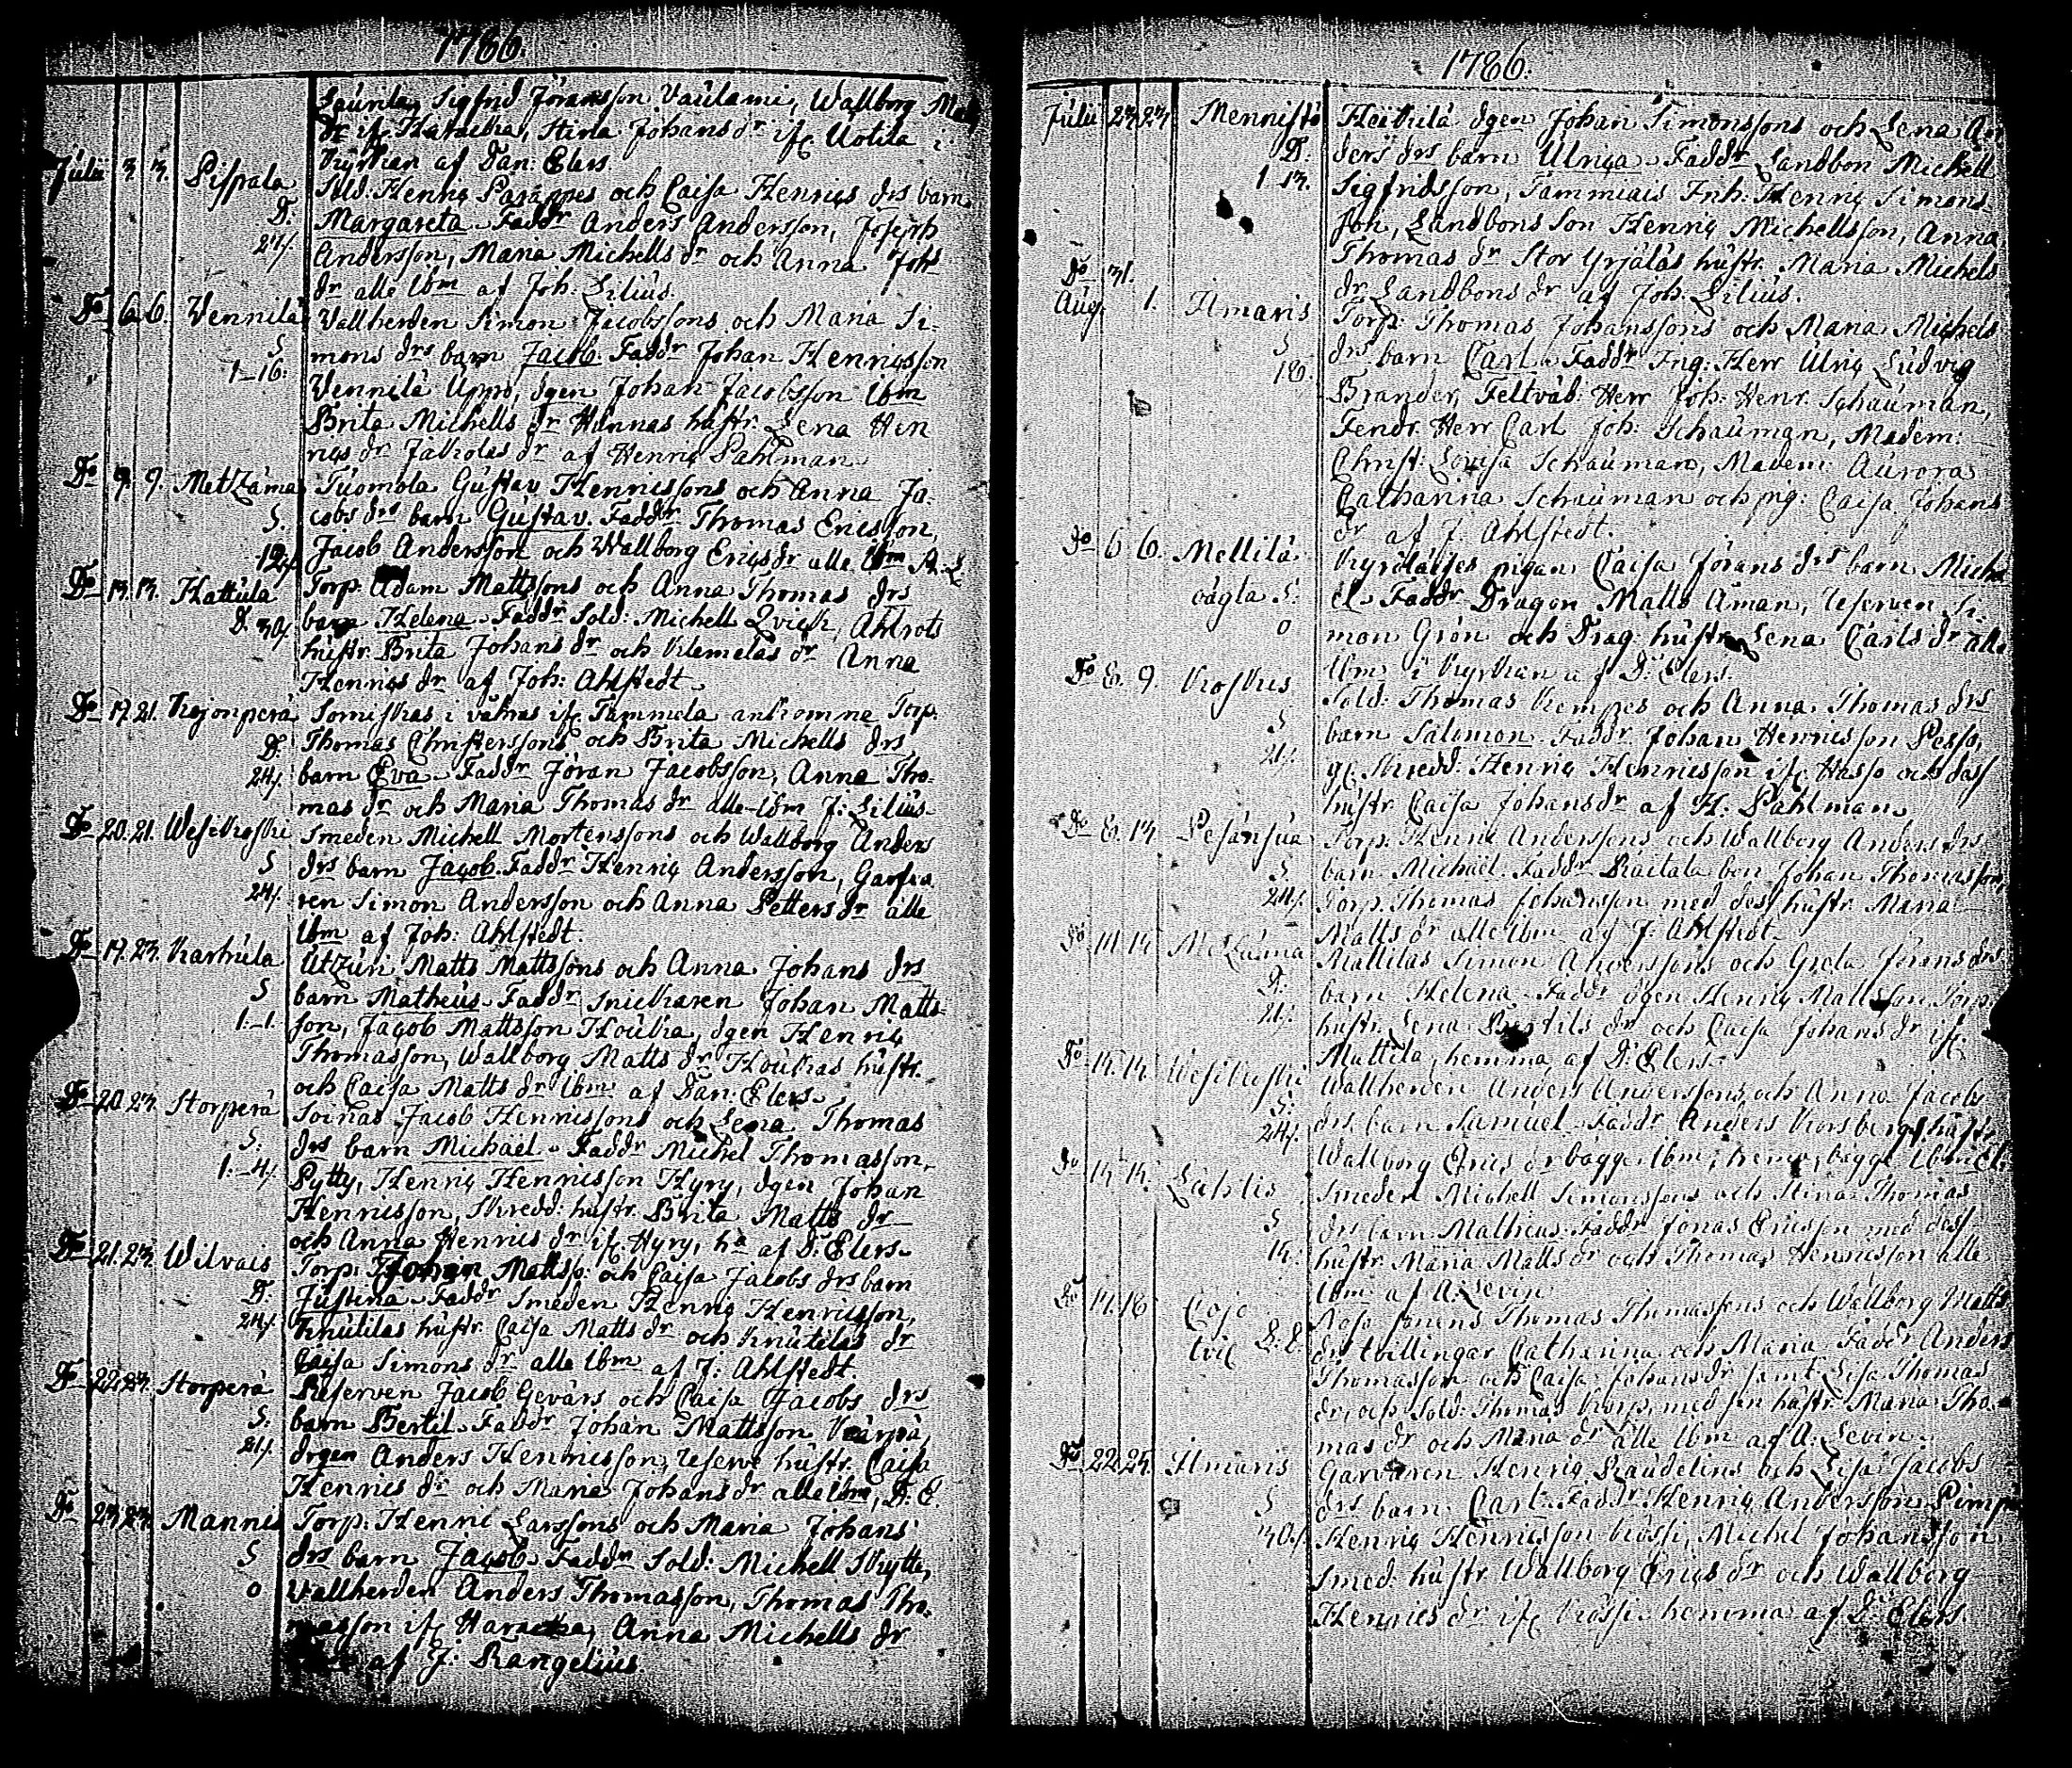 1786.
Saunlax Sigfrid Jöransson Vaulami, Wallborg Matts
dr ifr Haraelka, Stina Johans dr ifr Uotila i
kyrkan af Dan: Elers.
Julii 3. 3. Pispala Sold: Henriq Parappes och Caisa Henriqs drs barn
D: Margareta Faddr Anders Andersson, Joseph
24/. Andersson, Maria Michells dr och Anna Johs
dr alle Ibm af Joh: Lilius.
Do 6. 6. Vennilä Vallherden Simon Jacobssons och Maria Si-
S mons drs barn Jacob. Faddr Johan Henriqsson
1-16: Vennilä Uppo, dgen Johan Jacobsson Ibm
Brita Michells dr Hinnas hustr. Lena Hen
riqs dr Jakolas dr af Henriq Pahlman
Do 9. 9. Metzäma Tuomola Gustav Henricssons och Anna Ja-
S. cobs drs barn Gustav. Faddr Thomas Ericsson,
12/. Jacob Andersson och Wallborg Eriqs dr alle Ibm A. L
Do 13. 13. Kattula Torp: Adam Mattssons och Anna Thomas drs
D. 30/. barn Helena. Faddr Sold: Michell Qvick, Ahlrots
hustr. Brita Johans dr och Klemelas dr Anna
Henriqs dr af Joh: Ahlstedt
Do 17. 21. Kojonperä Sorniskas i våkas ifr Tammela ankomne Torp.
D. Thomas Christerssons och Brita Michells drs
24/. barn Eva. Faddr Jöran Jacobsson, Anna Tho-
mas dr och Maria Thomas dr alle Ibm J: Lilius
Do 20. 21. Wesikoski Smeden Michell Mortenssons och Wallborg Anders
S drs barn Jacob. Faddr Henriq Andersson, Garfva
24/. ren Simon Andersson och Anna Petters dr alle
Ibm af Joh: Ahlstedt.
Do 17. 23. Karhula Utzuri Matts Mattssons och Anna Johans drs
S barn Matheus. Faddr Snickaren Johan Matts-
1.-1. son, Jacob Mattsson Houkka, dgen Henriq
Thomasson, Wallborg Matts dr Houkas hustr.
och Caisa Matts dr Ibm af Dan: Elers.
Do 20 23. Storperä Soinas Jacob Henricssons och Lena Thomas
S. drs barn Michaël. Faddr Michel Thomasson,
1.-4/. Pytty, Henriq Henricsson Hyry, dgen Johan
Henricsson, Skredd: hustr. Brita Matts dr
och Anna Henrics dr ifr Hyry, ha af D: Elers.
Do 21. 23. Wilvais Torp: Johan Mattss: och Caisa Jacobs drs barn
D. Justina. Faddr Smeden Henriq Henricsson,
24/. Knutilas hustr. Caisa Matts dr och Knutilas dr
Caisa Simons dr alle Ibm af J: Ahlstedt.
Do 22 23. Storperä Reserven Jacob Gevärs och Caisa Jacobs drs
S. barn Bertil. Faddr Johan Mattsson Kärpä,
21/. drgen Anders Henricsson, reserve hustr. Caisa
Henrics dr och Maria Johans dr alle Ibm, D: E.
Do 23 23. Mannis Torp: Henric Larssons och Maria Johans
S drs barn Jacob. Faddr Sold: Michell Skytte,
0 Vallherden Anders Thomasson, Thomas Tho-
masson ifr Haraelka, Anna Michells dr
af J: Rangelius.
1786.
Julii 23 23 Mennistö Heikkilä dgen Johan Simonssons och Lena An
D: ders drs barn Ulriqa. Faddr Landbon Michell
1 13. Sigfridsson, Tammiais Inh: Henriq Simons
son, Landbons Son Henriq Michellsson, Anna
Thomas dr Stor Yrjäläs hustr. Maria Michels
dr Landbons dr af Joh: Lilius.
Do 31.
Aug. 1. Ilmaris Torp: Thomas Johanssons och Maria Michels
S drs barn Carl. Faddr Fng: Herr Ulriq Ludvig
18. Brander, Feltväb: Herr Joh: Henr. Schauman,
Fendr. Herr Carl Joh: Schauman, Madem:
Christ: Lovisa Schauman, Madem: Aurora
Catharina Schauman och pig: Caisa Johans
dr af J. Ahlstedt.
Do 6 6. Mellilä Kyrölaises pigan Caisa Jörans drs barn Micha
vägla S: el. Faddr Dragon Matts Åman, reserven Si-
0 mon Grön och Drag: hustr. Lena Carls dr alle
Ibm i kyrkan af D: Elers.
Do 8. 9. Koskis Sold: Thomas Kempes och Anna Thomas drs
S barn Salomon. Faddr Johan Henricsson Pesso,
21/. gl Skredd. Henriq Henricsson ifr Hasso och dess
hustr. Caisa Johans dr af H: Pahlman
Do 8. 13 Pesänsua Torp: Henric Anderssons och Wallborg Anders drs
S. barn Michaël. Faddr Raitala bon Johan Thomasson,
24/. Torp. Thomas Johansson med dess hustr. Maria
Matts dr alle Ibm af J: Ahlstedt
Do 14 Metzäma Mattilas Simon Anderssons och Greta Jörans drs
D. barn Helena. Faddr dgen Henriq Mattsson, Torp
21/. hustr. Lena Bertils dr och Caisa Johans dr ifr
Mattila, hemma, af D: Elers.
Do 14. 14. Wesikoski Wallherden Anders Anderssons och Anna Jacobs
S: drs barn Samuel. Faddr Anders Korsberg, hustr
24/. Wallborg Erics dr bägge Ibm, hema, bägge Ibm El:
Do 14 Lahtis Smeden Michell Simonssons och Stina Thomas
S drs barn Matheus. Faddr Jonas Ericsson med dess
hustr Maria Matts dr och Thomas Henricsson alle
Ibm af A: Levin
Do 14. 18 Cojo Thomas Thomassons och Wallborg Matts
drs tvillingar Catharina och Maria. Faddr Anders
Thomasson och Caisa Johans dr samt Lisa Thomas
dr, och Sold: Thomas Korp, med sin hustr. Maria Tho-
mas dr och Maria dr alle Ibm af A: Levin.
Do 22 25. Ilmaris Garvaren Henriq Raudelins och Lisa Jacobs
S drs barn Carl. Faddr Henriq Andersson Pimp
30/. Henriq Henricsson Krössi, Michel Johansson
Smed: hustr Wallborg Erics dr och Wallborg
Henrics dr ifr Krössi hemma af D: Elers.